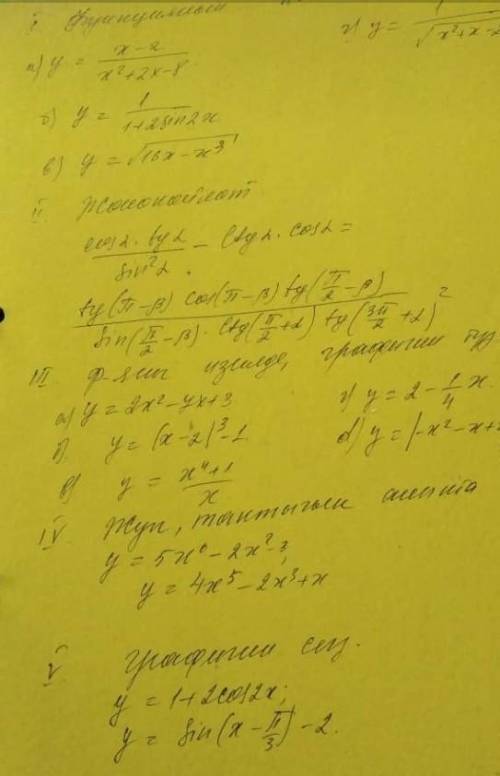 I Функциянын
г) y = 1/√(x²+x-
а) y = (x-2)/(x²+2x-8)
б) y = 1/(1+2sin2x)
в) y = √(16x-x³)
II Жөнөкөйлөт
(cosα·tgα)/(sin²α) - ctgα·cosα =
(tg(π-β) cos(π-β) tg(π/2-β))/(sin(π/2-β)·ctg(π/2+α) tg(3π/2+α)) =
III Ф-яны изилде, графигин түз
а) y = 2x²-4x+3
г) y = 2-1/4x
б) y = (x-2)³-1
d) y = |-x²-x+2
в) y = (x⁴+1)/x
IV Жуп, тактыгын аныкта
y = 5x⁶-2x²-3;
y = 4x⁵-2x³+x
V Графигин сыз.
y = 1+2cos2x;
y = sin(x-π/3)-2.